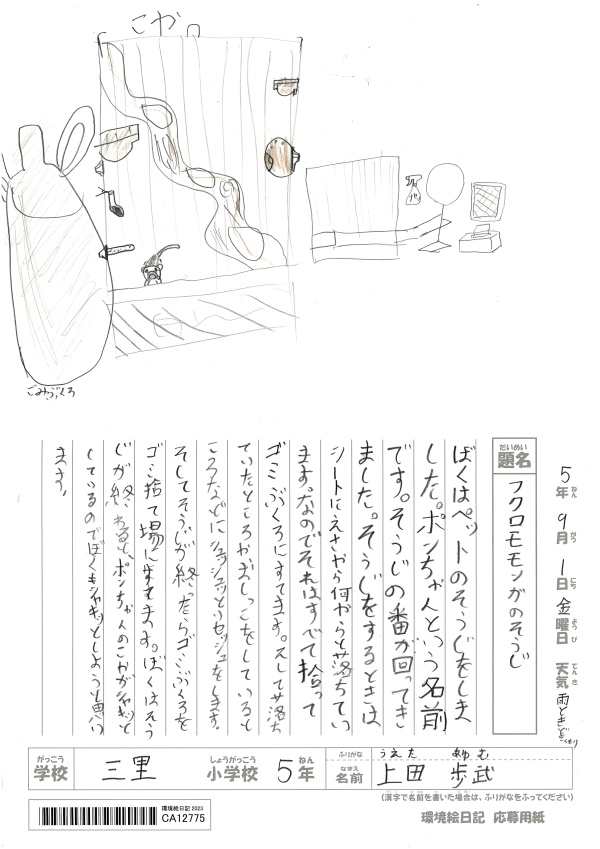 こや
ごみぶくろ
5年 9月 1日 金曜日 天気 雨ときどきくもり
ねん がつ にち ようび てんき
だいめい
題名 フクロモモンガのそうじ
ぼくはペットのそうじをしま
した。ポンちゃんという名前
です。そうじの番が回ってき
ました。そうじをするときは
シートにえさやら何やらと落ちてい
ます。なのでそれはすべて拾って
ゴミぶくろにすてます。そして落ち
ていたところやおしっこをしていると
ころなどにシュッシュッと
そしてそうじが終ったらゴミぶくろを
ゴミ捨て場にすてます。ぼくはそう
じが終わると、ポンちゃんのこやがシャキッと
しているのでぼくもシャキッとしようと思い
ます。
がっこう しょうがっこう ねん ふりがな うえた あゆむ
学校 三里 小学校 5年 なまえ 名前 上田 歩武
(漢字で名前を書いた場合は、ふりがなをふってください)
環境絵日記2023
CA12775
環境絵日記 応募用紙